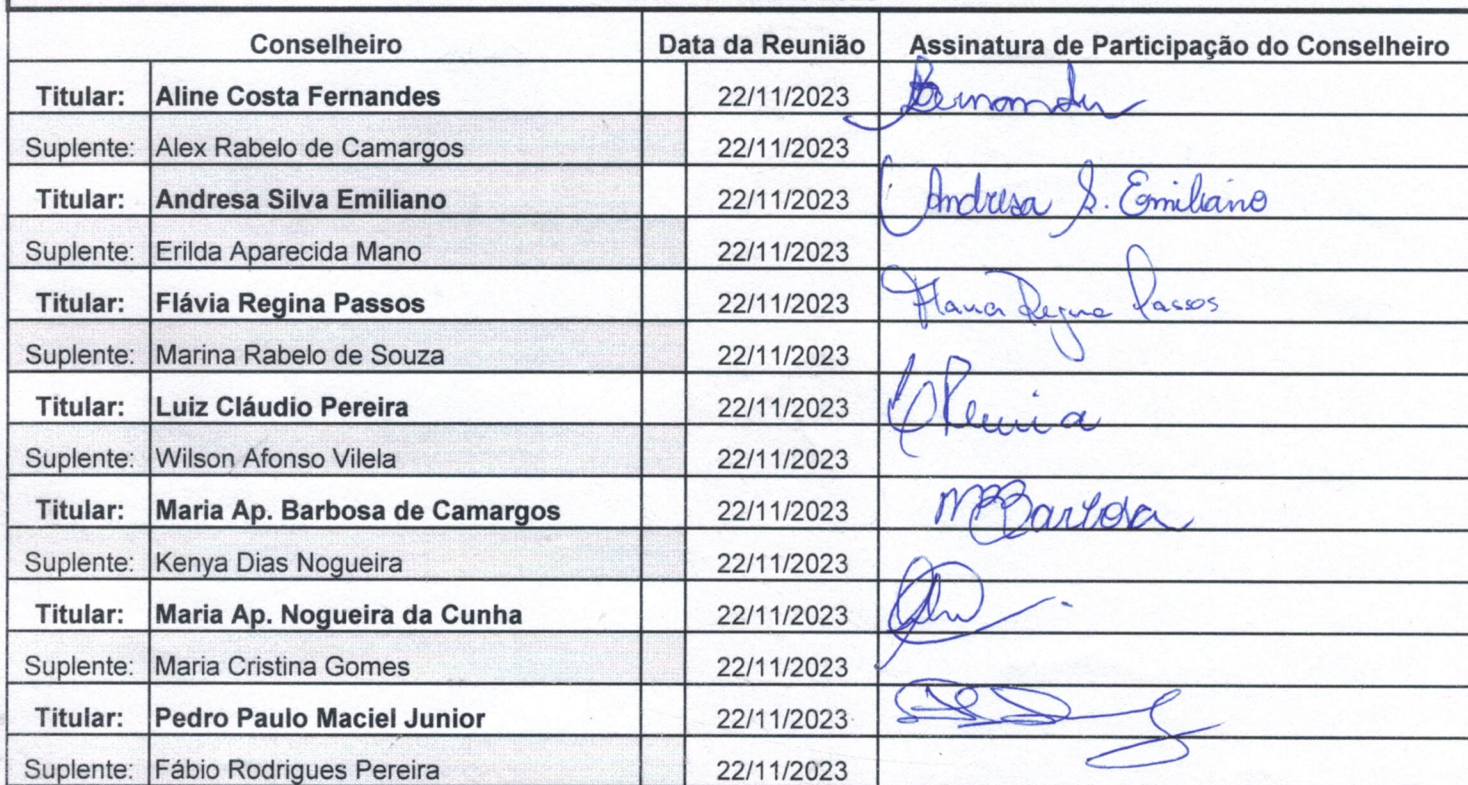 Conselheiro Data da Reunião Assinatura de Participação do Conselheiro
Titular: Aline Costa Fernandes 22/11/2023
Suplente: Alex Rabelo de Camargos 22/11/2023
Titular: Andresa Silva Emiliano 22/11/2023 Andresa S. Emiliano
Suplente: Erilda Aparecida Mano 22/11/2023
Titular: Flávia Regina Passos 22/11/2023 Flavia Regina Passos
Suplente: Marina Rabelo de Souza 22/11/2023
Titular: Luiz Cláudio Pereira 22/11/2023
Suplente: Wilson Afonso Vilela 22/11/2023
Titular: Maria Ap. Barbosa de Camargos 22/11/2023 MBarbosa
Suplente: Kenya Dias Nogueira 22/11/2023
Titular: Maria Ap. Nogueira da Cunha 22/11/2023
Suplente: Maria Cristina Gomes 22/11/2023
Titular: Pedro Paulo Maciel Junior 22/11/2023
Suplente: Fábio Rodrigues Pereira 22/11/2023